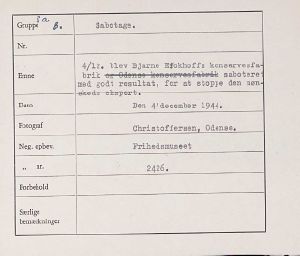 Gruppe 5a B. Sabotage.
Nr.
Emne 4/12. blev Bjarne Eickhoffs konservesfa-
brik og Odense konservesfabrik saboteret
med godt resultat, for at stoppe den
ekspert.
Dato Den 4' december 1944.
Fotograf Christoffersen, Odense.
Neg. opbev. Frihedsmuseet
„ nr. 2426.
Forbehold
Særlige
bemærkninger